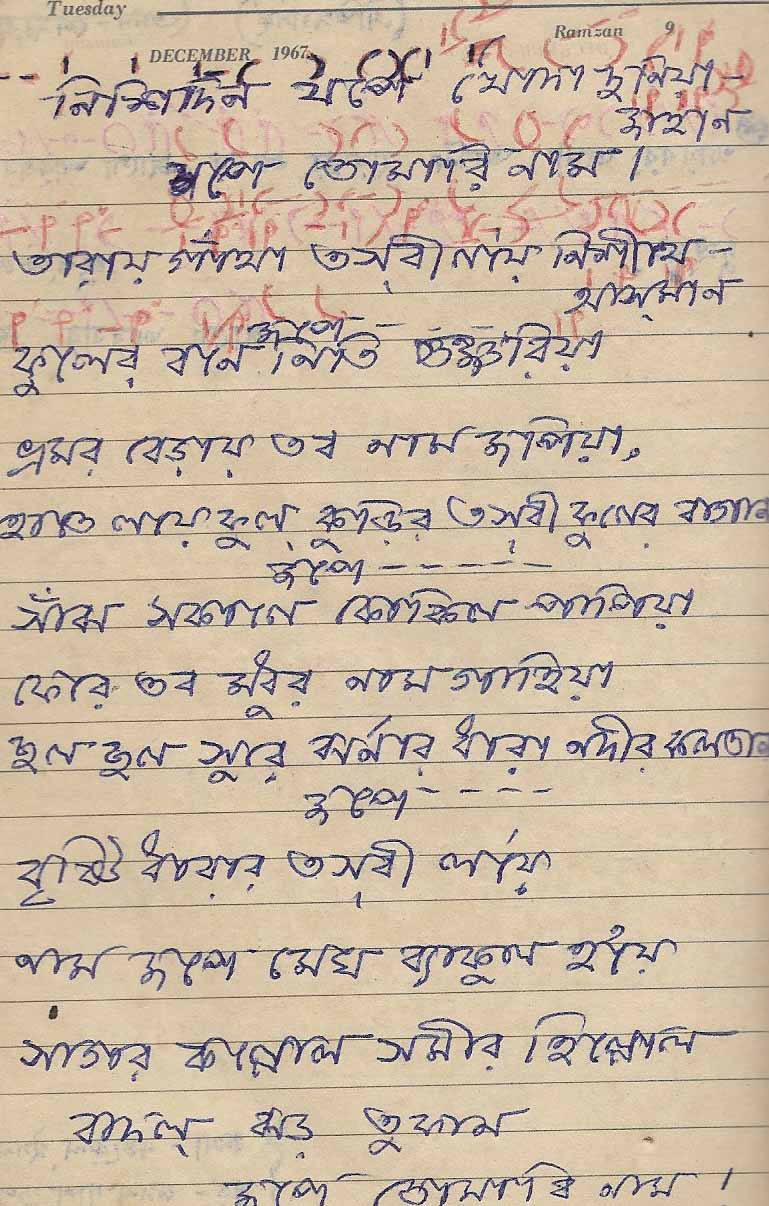 Tuesday
DECEMBER 1967
Ramzan 9
নিশিদিন যপে খোদা দুনিয়া -
জাহান
যপে তোমারি নাম।
তারায় গাঁথা তস্‌বী ল'য়ে নিশীথে -
আস্‌মান
জপে - -
ফুলের বনে নিতি গুঞ্জরিয়া
ভ্রমর বেড়ায় তব নাম জপিয়া,
হাতে লয়ে ফুল কুঁড়ির তস্‌বী ফুলের বাগান
জপে - - - - -
সাঁঝ সকালে কোকিল পাপিয়া
ফেরে তব মধুর নাম গাহিয়া
ছল ছল সুরে ঝর্নার ধারা নদীর কলতান
জপে - - - -
বৃষ্টি ধারার তস্‌বী ল'য়ে
নাম জপে মেঘ ব্যাকুল হ'য়ে
সাগর কল্লোল সমীর হিল্লোল
বাদল ঝড় তুফান
জপে তোমারি নাম।